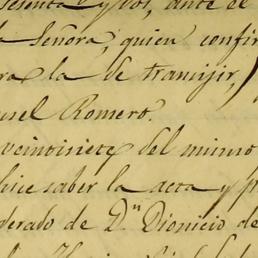 sesenta y dos, ante el
Señora, quien confir
ra la de transijir,
uel Romero.
veintisiete del mismo
hice saber la acta y pr
derado de Dⁿ Dionicio de